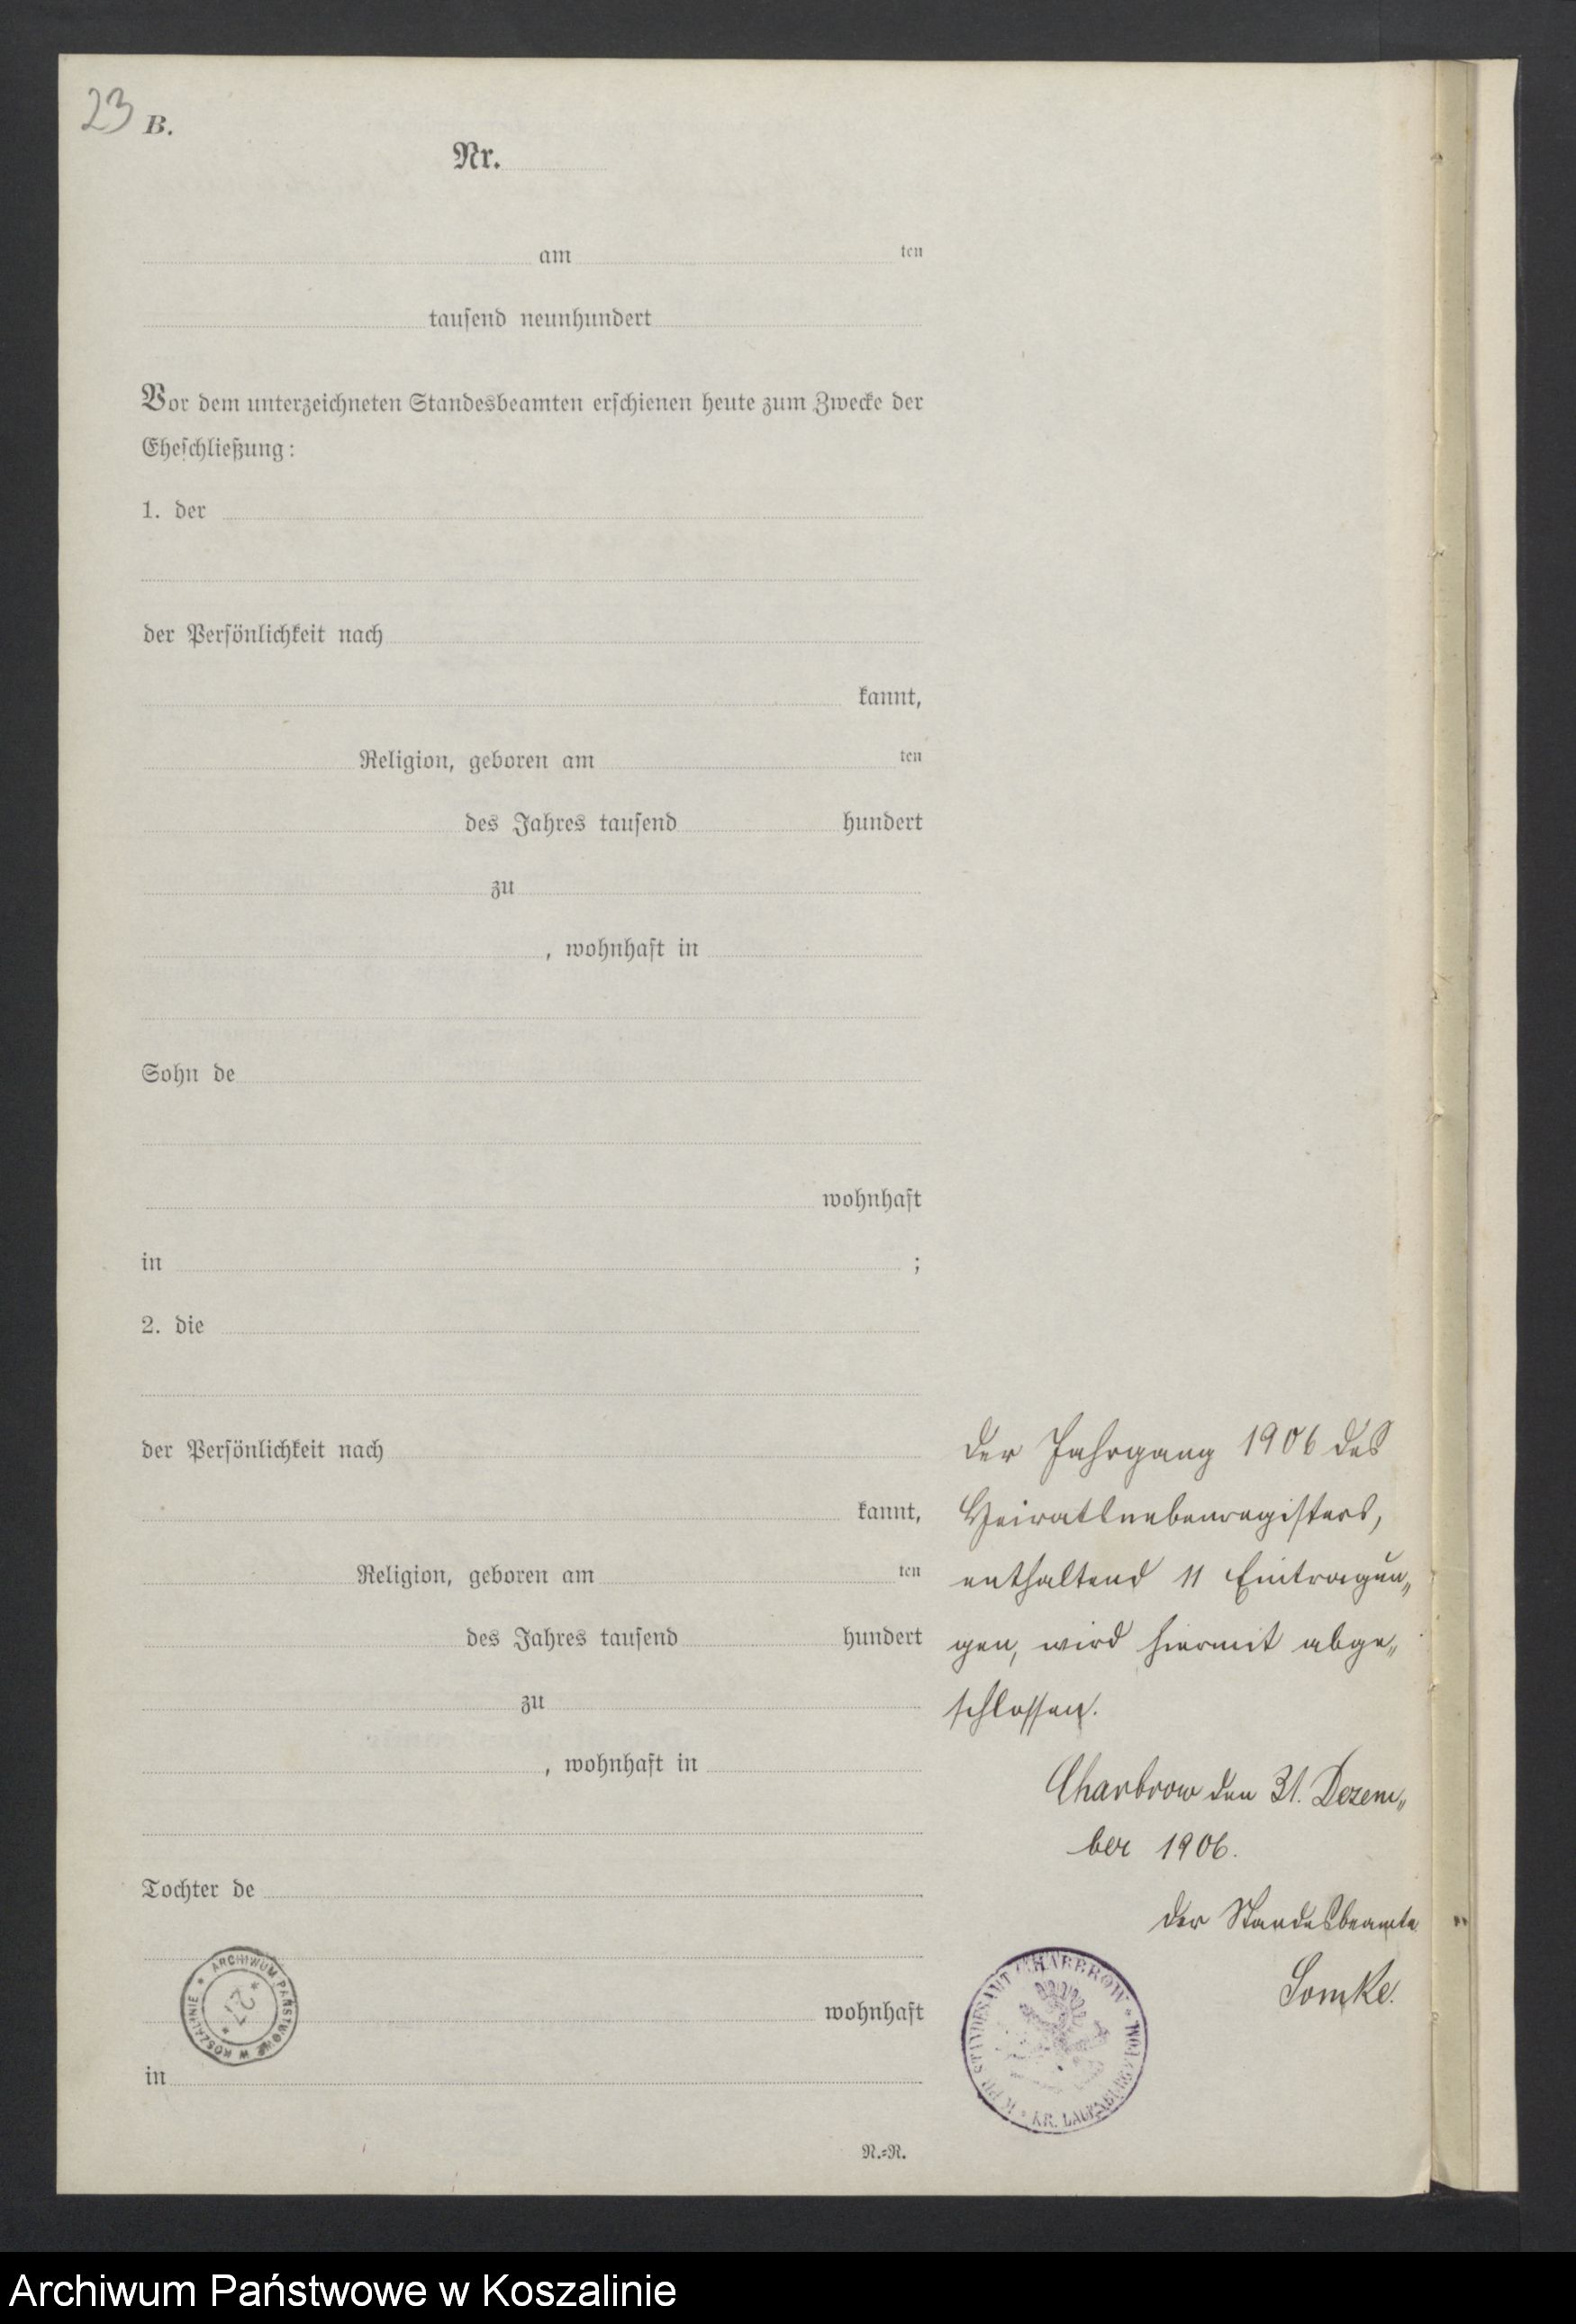 23 B.
Nr.
am ten
tausend neunhundert
Vor dem unterzeichneten Standesbeamten erschienen heute zum Zwecke der
Eheschließung:
1. der
der Persönlichkeit nach
kannt,
Religion, geboren am ten
des Jahres tausend hundert
zu
, wohnhaft in
Sohn de
wohnhaft
in ;
2. die
der Persönlichkeit nach
kannt,
Religion, geboren am ten
des Jahres tausend hundert
zu
, wohnhaft in
Tochter de
wohnhaft
in
N.=N.
Der Jahrgang 1906 des
Heiratsnebenregisters,
enthaltend 11 Eintragun„
gen, wird hiermit abge„
schlossen.
Charbrow den 31. Dezem„
ber 1906.
Der Standesbeamte
Somke.
ARCHIWUM PAŃSTWOWE W KOSZALINIE
* 27 *
STANDESAMT CHARBROW * KR. LAUENBURG
Archiwum Państwowe w Koszalinie